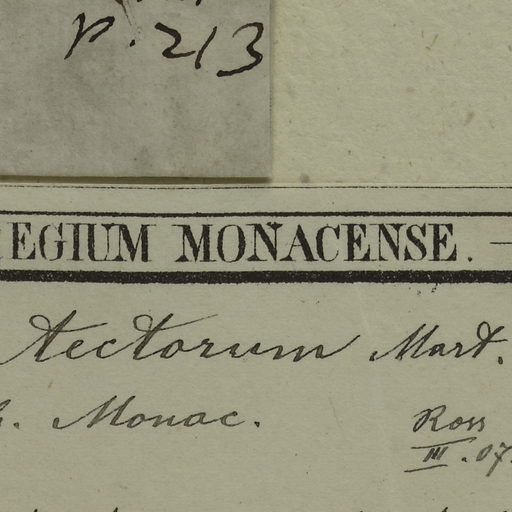 p. 213
REGIUM MONACENSE. —
tectorum Mart.
h. Monac.
Ross
III. 07.